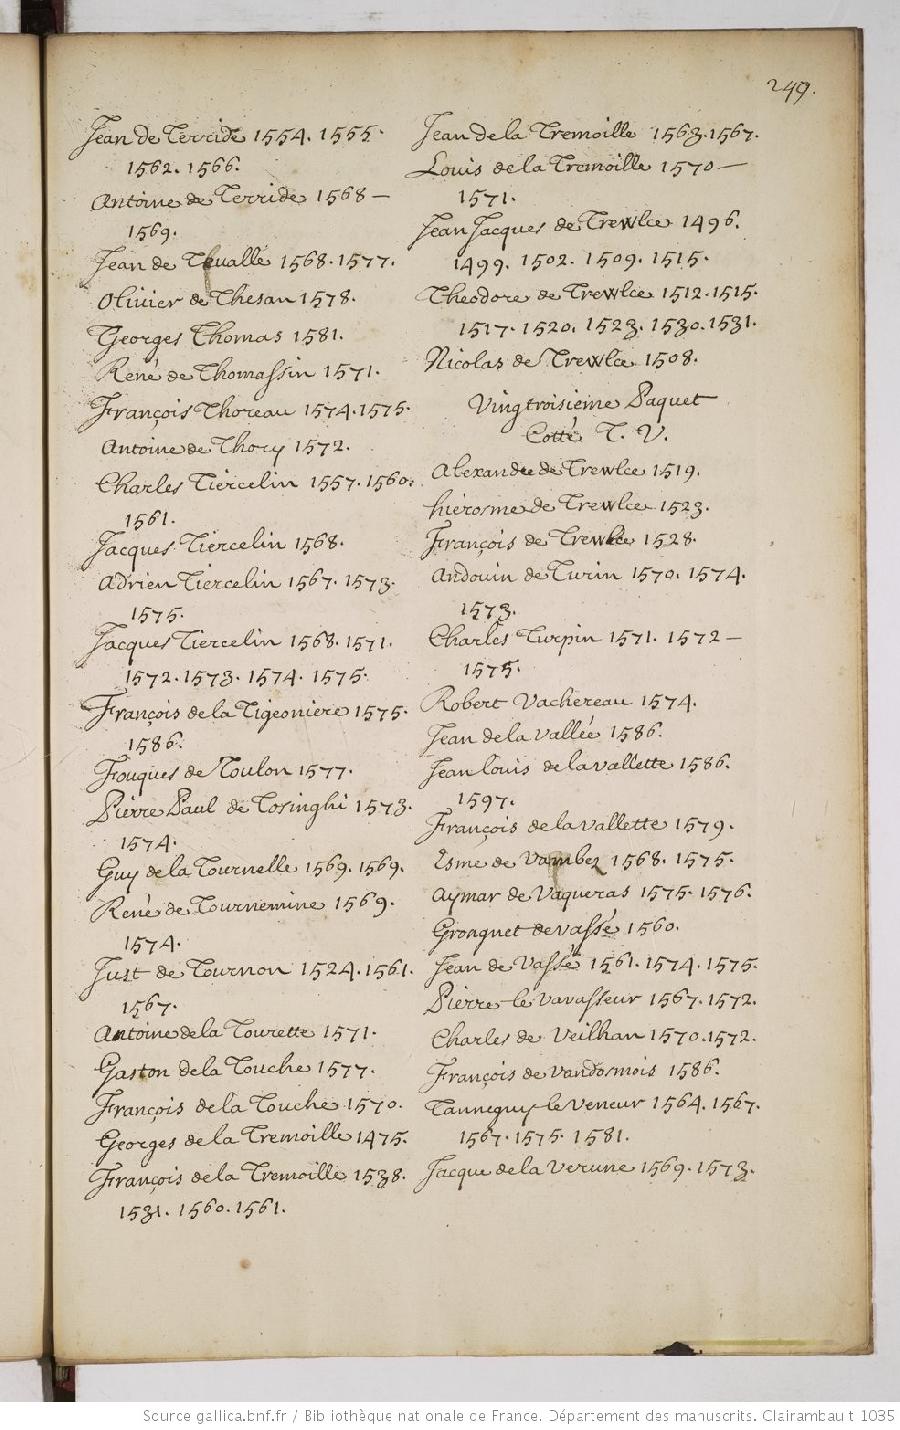 249.
Jean de Terride 1554. 1555.
1562. 1566.
Antoine de Terride 1568 —
1569.
Jean de Thuallé 1568. 1577.
Olivier de Thesan 1578.
Georges Thomas 1581.
René de Thomassin 1571.
François Thoreau 1574. 1575.
Antoine de Thory 1572.
Charles Tiercelin 1557. 1560.
1561.
Jacques Tiercelin 1568.
Adrien Tiercelin 1567. 1573.
1575.
Jacques Tiercelin 1568. 1571.
1572. 1573. 1574. 1575.
François de la Tigeoniere 1575.
1586.
Fouques de Toulon 1577.
Pierre Paul de Tosinghi 1573.
1574.
Guy de la Tournelle 1569. 1569.
René de Tournemine 1569.
1574.
Just de Tournon 1524. 1561.
1567.
Antoine de la Tourette 1571.
Gaston de la Touche 1577.
François de la Touche 1570.
Georges de la Tremoille 1475.
François de la Tremoille 1538.
1531. 1560. 1561.
Jean de la Tremoille 1563. 1567.
Louis de la Tremoille 1570 —
1571.
Jean Jacques de Trewlce 1496.
1499. 1502. 1509. 1515.
Theodore de Trewlce 1512. 1515.
1517. 1520. 1523. 1530. 1531.
Nicolas de Trewlce 1508.
Vingtroisieme Paquet
Cotté T. V.
Alexandre de Trewlce 1519.
hierosme de Trewlce 1523.
François de Trewlce 1528.
Andouin de Turin 1570. 1574.
1573.
Charles Turpin 1571. 1572 —
1575.
Robert Vachereau 1574.
Jean de la Vallée 1586.
Jean louis de la vallette 1586.
1597.
François de la vallette 1579.
Esme de Vambez 1568. 1575.
Aymar de Vaqueras 1575. 1576.
Grongnet de vassé 1560.
Jean de Vassé 1561. 1574. 1575.
Pierre le vavasseur 1567. 1572.
Charles de Veilhan 1570. 1572.
François de vandosmois 1586.
Tanneguy le veneur 1564. 1567.
1567. 1575. 1581.
Jacque de la Verune 1569. 1573.
Source gallica.bnf.fr / Bibliothèque nationale de France. Département des manuscrits. Clairambault 1035